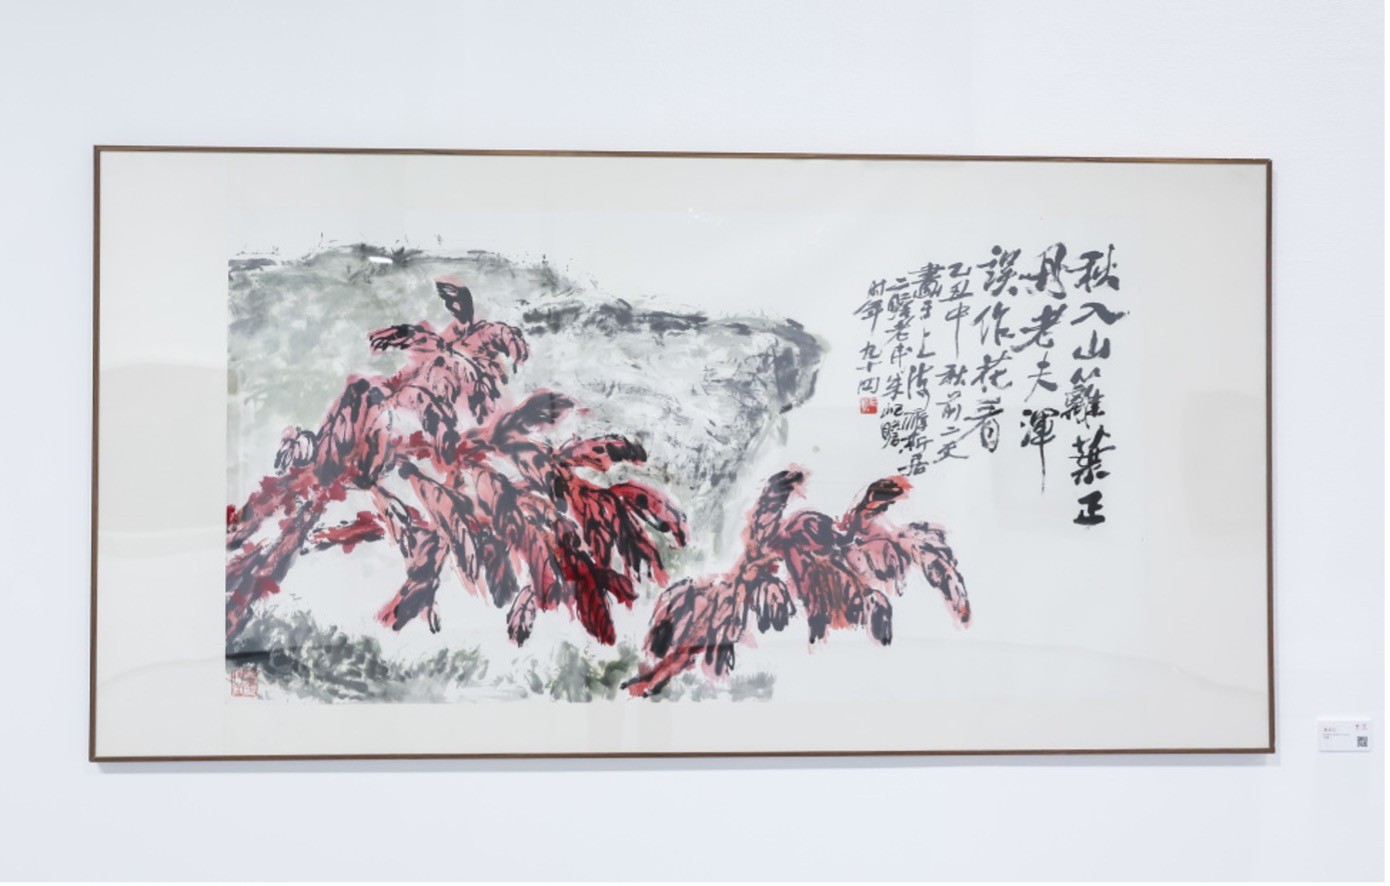 秋入山籬葉正
丹老夫渾
誤作花看
乙丑中秋前二天
畫于上上海癖斯居
二瞻老民朱屺瞻
时年九十四